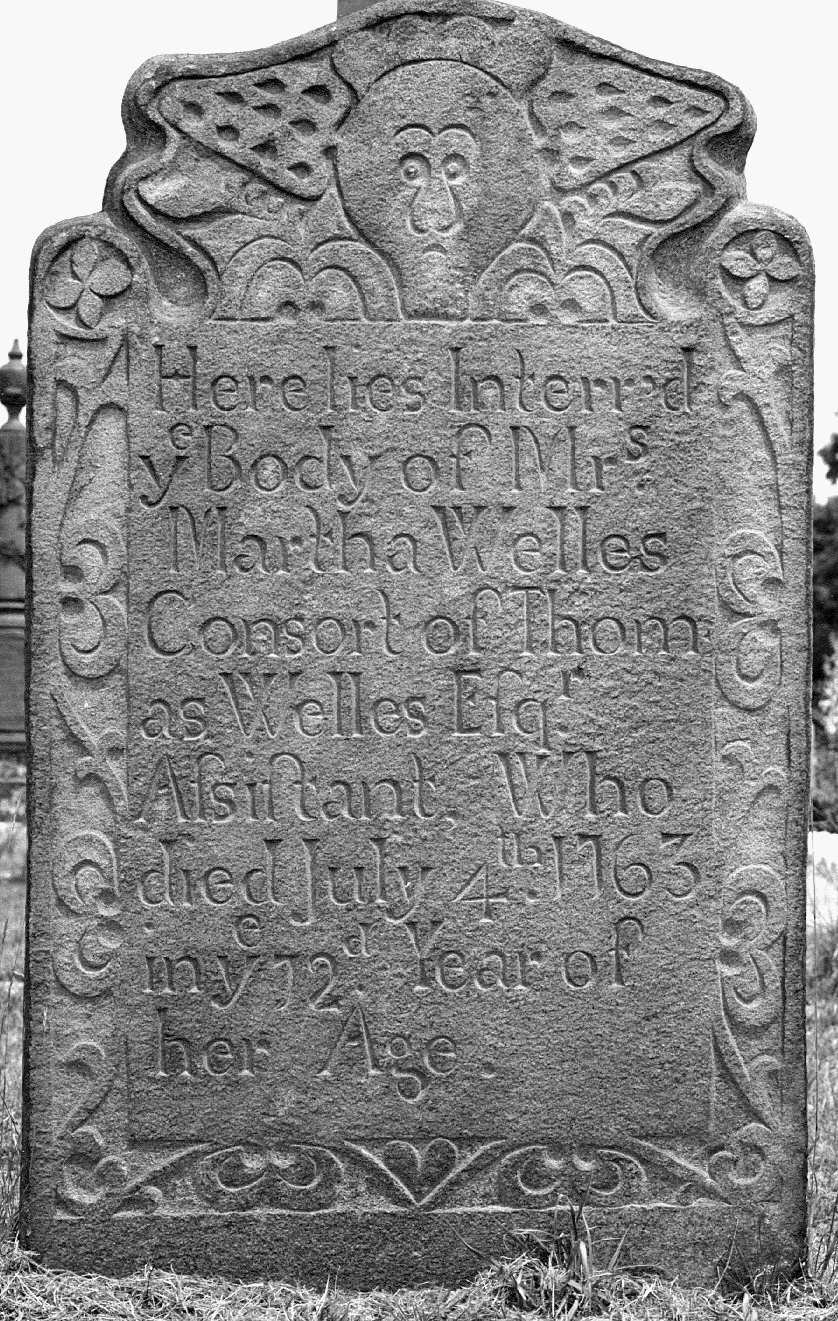 Here lies Interr'd
yᵉ Body of Mrˢ.
Martha Welles
Consort of Thom
as Welles Eſqʳ
Aſsiſtant, Who
died July 4ᵗʰ. 1763
in yᵉ 72ᵈ. Year of
her Age.